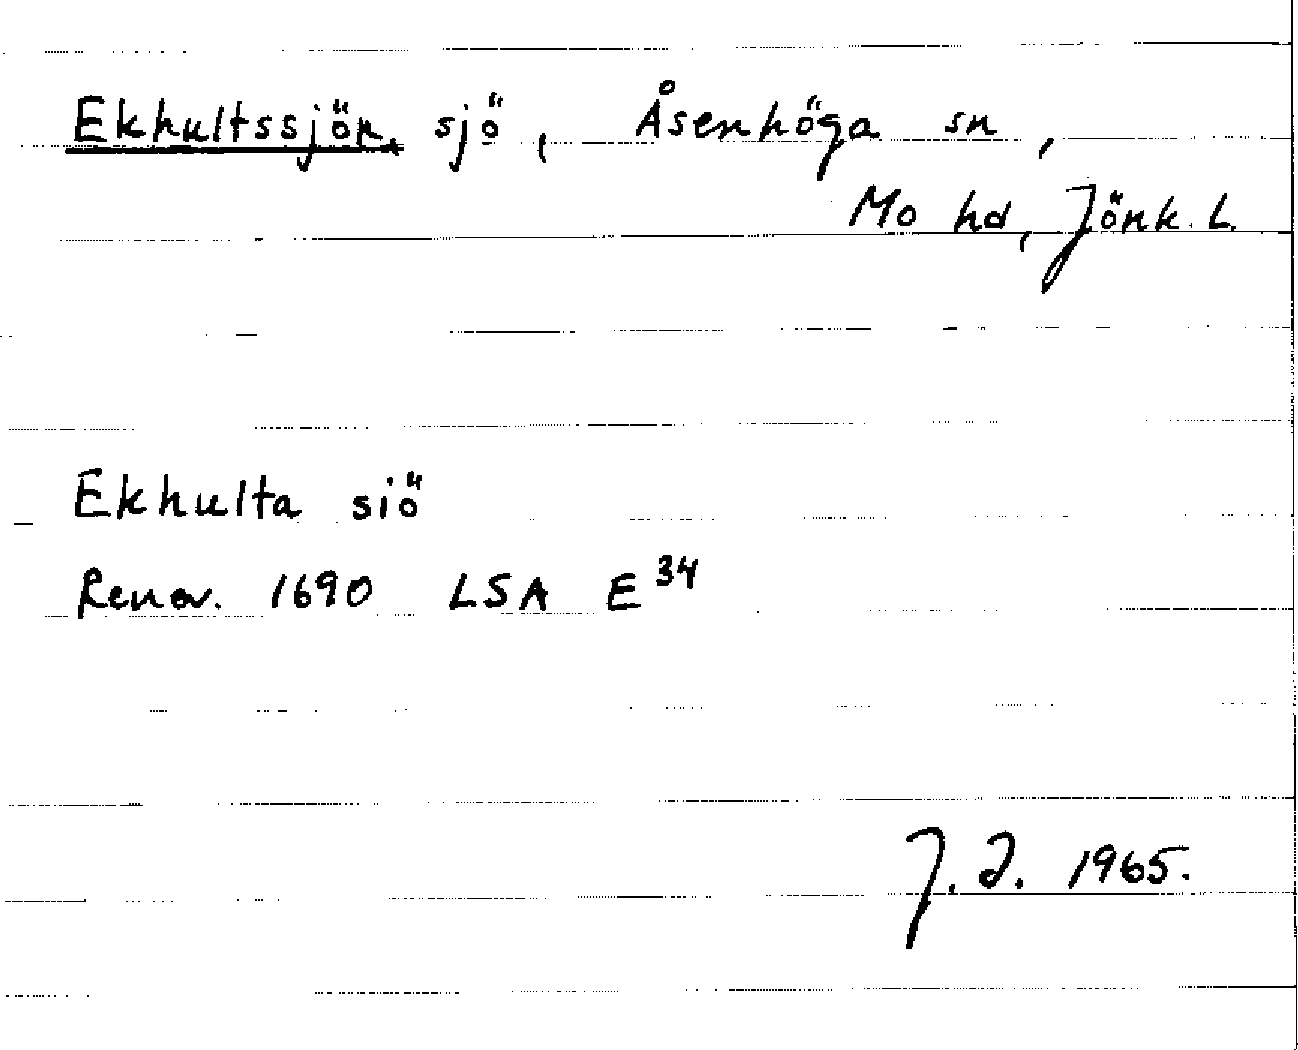 Ekhultssjön, sjö, Åsenhöga sn,
Mo hd, Jönk. L.
Ekhulta siö
Renov. 1690 LSA E 34
J. J. 1965.